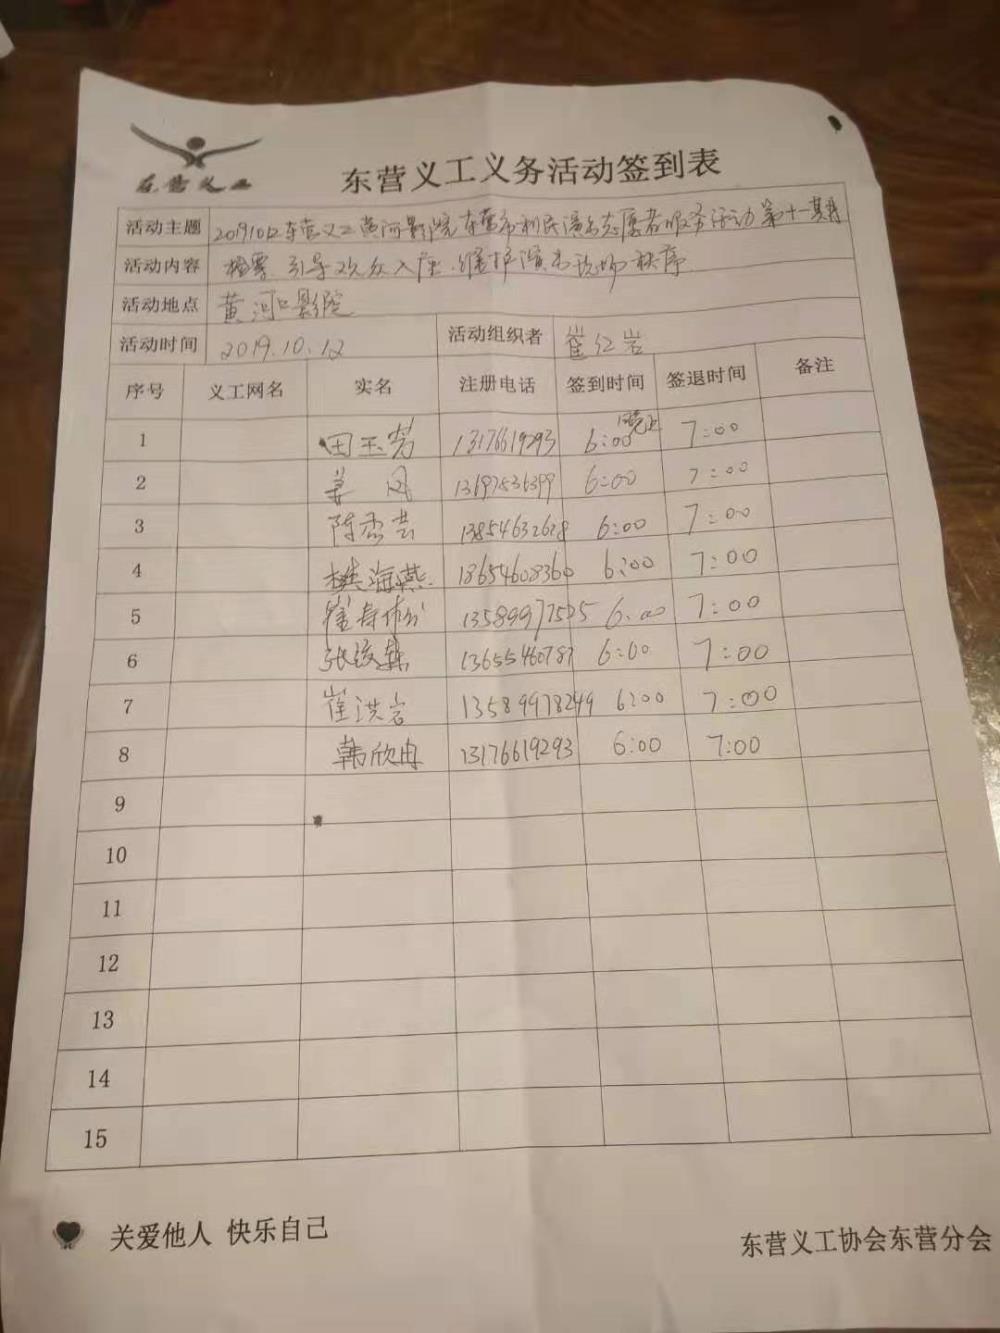 东营义工
东营义工义务活动签到表
活动主题 20191012东营义工黄河影院东营市利民演出志愿者服务活动第十一期
活动内容 检票 引导观众入座.维护演出现场秩序
活动地点 黄河口影院
活动时间 2019.10.12 活动组织者 崔红岩
序号 义工网名 实名 注册电话 签到时间 签退时间 备注
1 田玉芳 13176619293 晚上 6:00 7:00
2 姜 风 13697536399 6:00 7:00
3 陈 芸 13854632628 6:00 7:00
4 樊海燕 18654608360 6:00 7:00
5 崔寿 13589977525 6:00 7:00
6 张 13655460787 6:00 7:00
7 崔洪岩 13589978249 6:00 7:00
8 韩欣冉 13176619293 6:00 7:00
9
10
11
12
13
14
15
关爱他人 快乐自己
东营义工协会东营分会